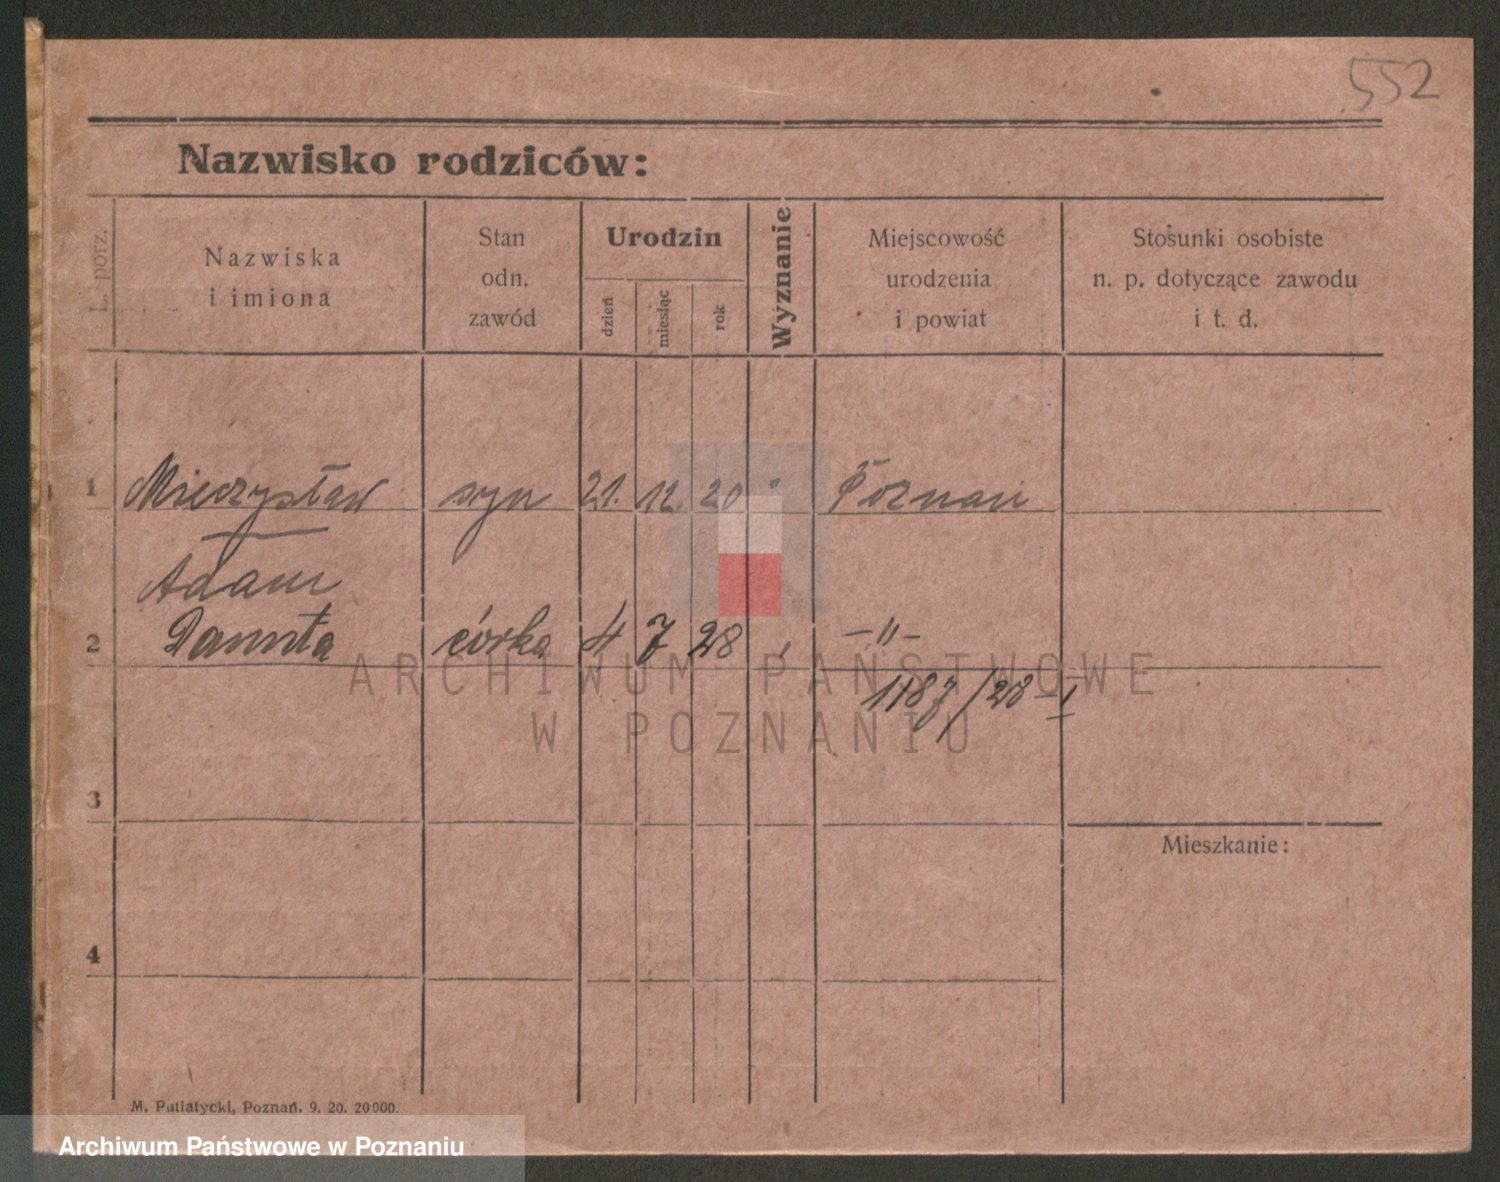 552
Nazwisko rodziców:
L. porz.
Nazwiska
i imiona
Stan
odn.
zawód
Urodzin
dzień
miesiąc
rok
Wyznanie
Miejscowość
urodzenia
i powiat
Stosunki osobiste
n. p. dotyczące zawodu
i t. d.
1 Mieczysław syn 21. 12. 20 " Poznań
Adam
2 Danuta córka 4 7 28 " —"—
1187/28-I
3
Mieszkanie:
4
M. Putiatycki, Poznań. 9. 20. 20000.
ARCHIWUM PAŃSTWOWE
W POZNANIU
Archiwum Państwowe w Poznaniu